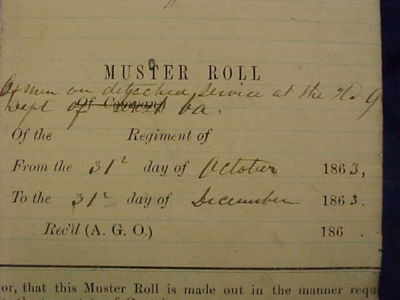 MUSTER ROLL
Of men on detached service at the Hd Q
Dept of West Va.
Of Company
Of the Regiment of
From the 31st day of October 1863,
To the 31st day of December 1863.
Rec'd (A. G. O.) 186 .
or, that this Muster Roll is made out in the manner requ